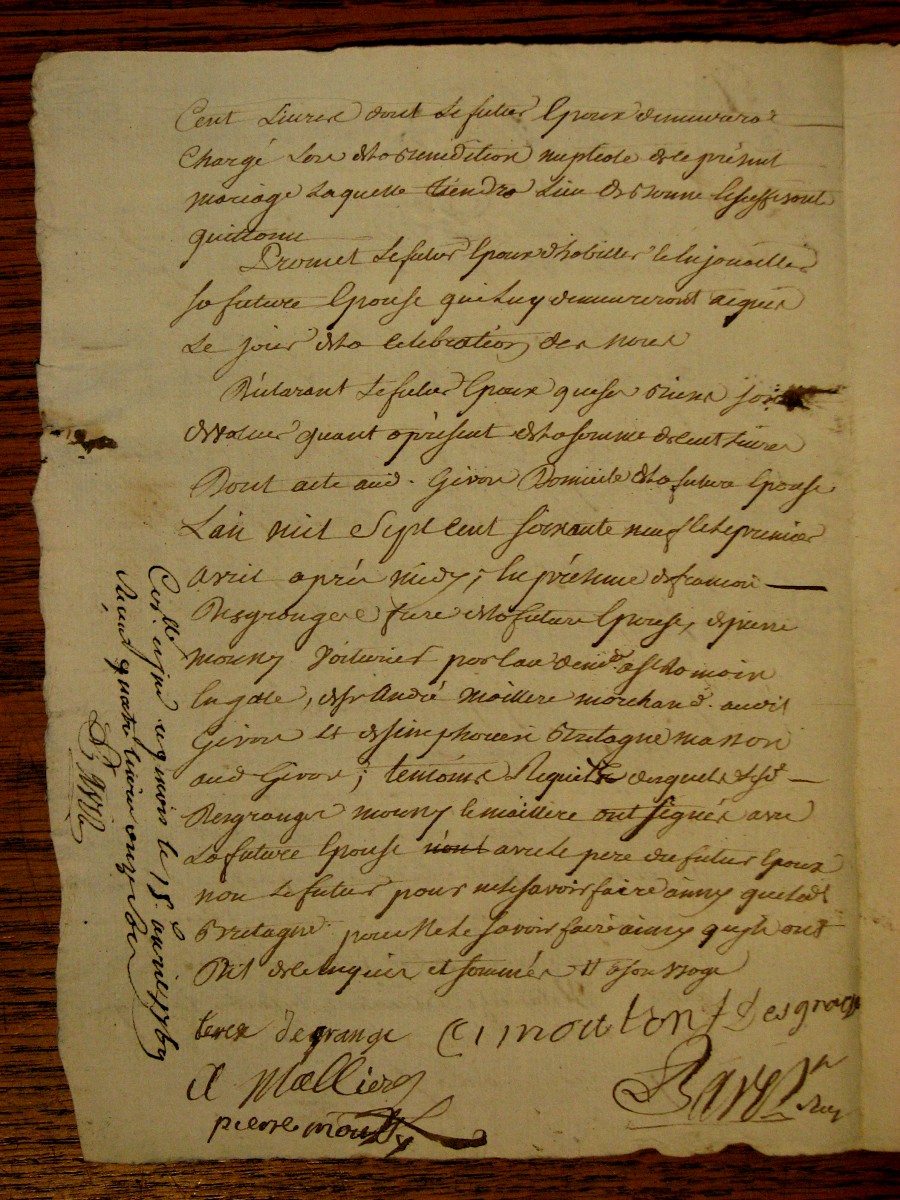 Cent Livres dont Le futur Epoux demeurera
Chargé Lors de la Benediction nuptiale de le présent
mariage Laquelle tiendra Lieu de bonne
quittance
Promet Le futur Epoux d'habiller & Enjouailler
sa future Epouse qui Luy demeureront acquis
Le jour de la Celebration des noces
Déclarant Le futur Epoux que ses Biens sont
de valeur quant aprésent de la somme de cent Livres
Dont acte aud. Givors Domicile de la future Epouse
L'an mil Sept Cent soixante neuf & le premier
avril après midy, En présence de francois
Desgranges frere de la future Epouse, de pierre
mouny Voiturier par Eau demt. a St Romain
En gale, de sr André maillere marchand. audit
Givors Et de simphorien Bretagne masson
aud Givors; temoins Requis desquels Led.
Desgranges mouny & maillere ont signés avec
La future Epouse avec le pere du futur Epoux
non Le futur pour ne le savoir faire ainsy que led.
Bretagne pour Ne Le savoir faire ainsy qu'ils ont
Dit de ce enquis et sommés
degrange C mouton f Desgrange
A Mallier
pierre mouny
Con.llé a givors le 15 avril 1769
Recu quatre livres onze sols